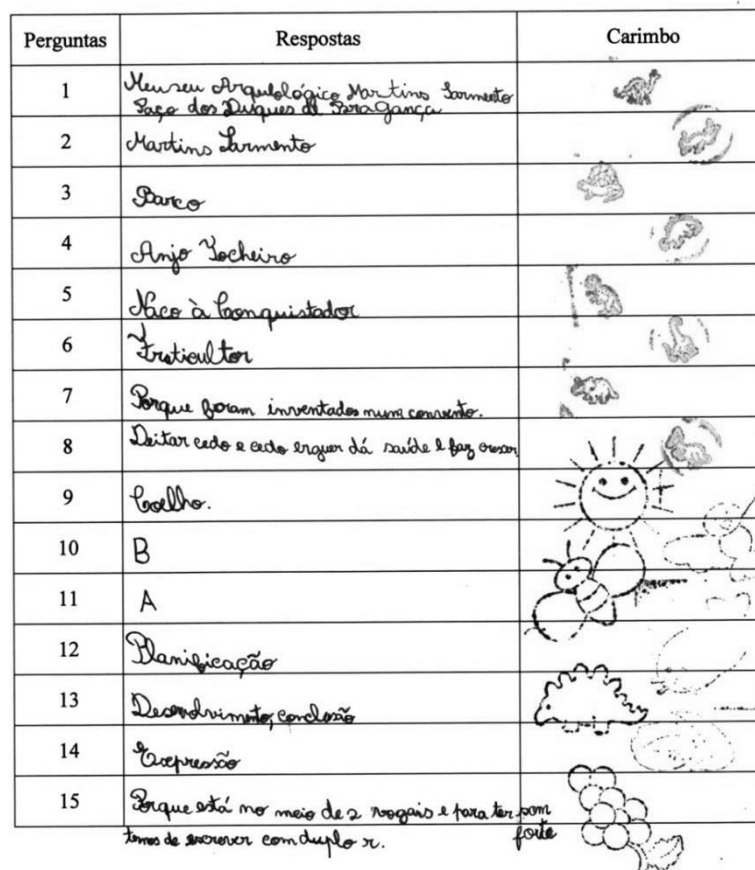 Perguntas Respostas Carimbo
1 Meuseu Arquelológico Martins Sarmento
Paço dos Duques de Bragança
2 Martins Sarmento
3 Barco
4 Anjo Tocheiro
5 Naco à Conquistador
6 Fruticultor
7 Porque foram inventados num convento.
8 Deitar cedo e cedo erguer dá saúde e faz crescer
9 Coelho.
10 B
11 A
12 Planificação
13 Desenvolvimento, conclusão
14 Expressão
15 Porque está no meio de 2 vogais e para ter som
temos de escrever com duplo r. forte